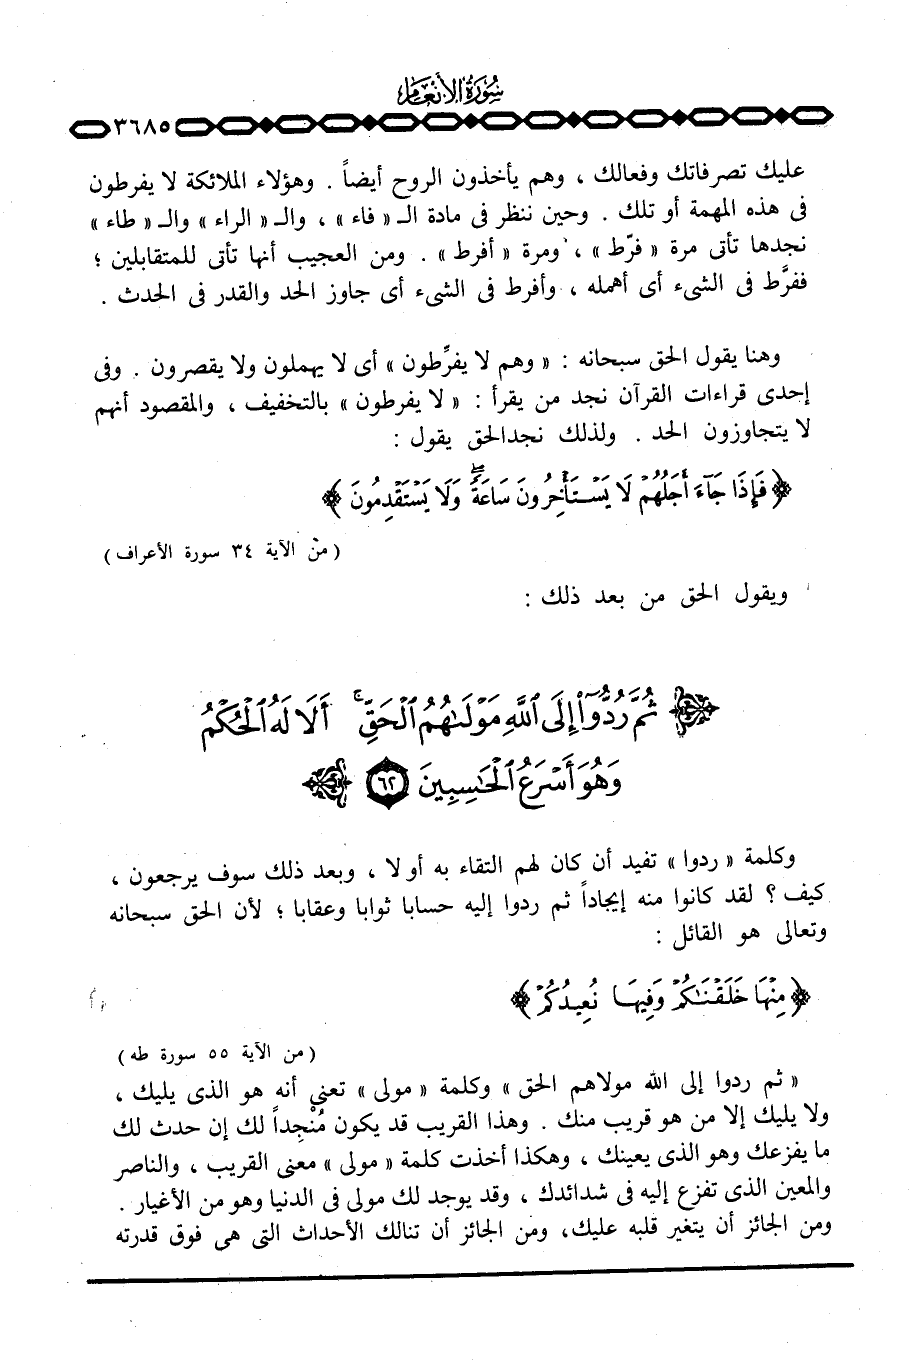 سُورَةُ الأَنْعَام
٣٦٨٥
عليك تصرفاتك وفعالك ، وهم يأخذون الروح أيضاً . وهؤلاء الملائكة لا يفرطون
فى هذه المهمة أو تلك . وحين ننظر فى مادة الـ « فاء » ، والـ « الراء » والـ « طاء »
نجدها تأتى مرة « فرّط » ، ومرة « أفرط » . ومن العجيب أنها تأتى للمتقابلين ؛
ففرَّط فى الشىء أى أهمله ، وأفرط فى الشىء أى جاوز الحد والقدر فى الحدث .
وهنا يقول الحق سبحانه : « وهم لا يفرِّطون » أى لا يهملون ولا يقصرون . وفى
إحدى قراءات القرآن نجد من يقرأ : « لا يفرطون » بالتخفيف ، والمقصود أنهم
لا يتجاوزون الحد . ولذلك نجدالحق يقول :
﴿ فَإِذَا جَآءَ أَجَلُهُمْ لَا يَسْتَأْخِرُونَ سَاعَةً ۖ وَلَا يَسْتَقْدِمُونَ ﴾
( من الآية ٣٤ سورة الأعراف )
ويقول الحق من بعد ذلك :
ثُمَّ رُدُّوٓا۟ إِلَى ٱللَّهِ مَوْلَىٰهُمُ ٱلْحَقِّ ۚ أَلَا لَهُ ٱلْحُكْمُ
وَهُوَ أَسْرَعُ ٱلْحَٰسِبِينَ ٦٢
وكلمة « ردوا » تفيد أن كان لهم التقاء به أولا ، وبعد ذلك سوف يرجعون ،
كيف ؟ لقد كانوا منه إيجاداً ثم ردوا إليه حسابا ثوابا وعقابا ؛ لأن الحق سبحانه
وتعالى هو القائل :
﴿ مِنْهَا خَلَقْنَٰكُمْ وَفِيهَا نُعِيدُكُمْ ﴾
( من الآية ٥٥ سورة طه )
« ثم ردوا إلى الله مولاهم الحق » وكلمة « مولى » تعني أنه هو الذى يليك ،
ولا يليك إلا من هو قريب منك . وهذا القريب قد يكون مُنْجِداً لك إن حدث لك
ما يفزعك وهو الذى يعينك ، وهكذا أخذت كلمة « مولى » معنى القريب ، والناصر
والمعين الذى تفزع إليه فى شدائدك ، وقد يوجد لك مولى فى الدنيا وهو من الأغيار .
ومن الجائز أن يتغير قلبه عليك، ومن الجائز أن تنالك الأحداث التى هى فوق قدرته